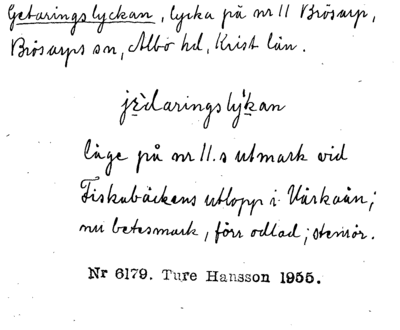 Getaringslyckan, lycka på nr 11 Brösarp,
Brösarps sn, Albo hd, Krist län.
jèdaringslýkan
låge på nr 11.s utmark vid
Fiskabäckens utlopp i Vårkaån;
nu betesmark, förr odlad; stenör.
Nr 6179. Ture Hansson 1955.